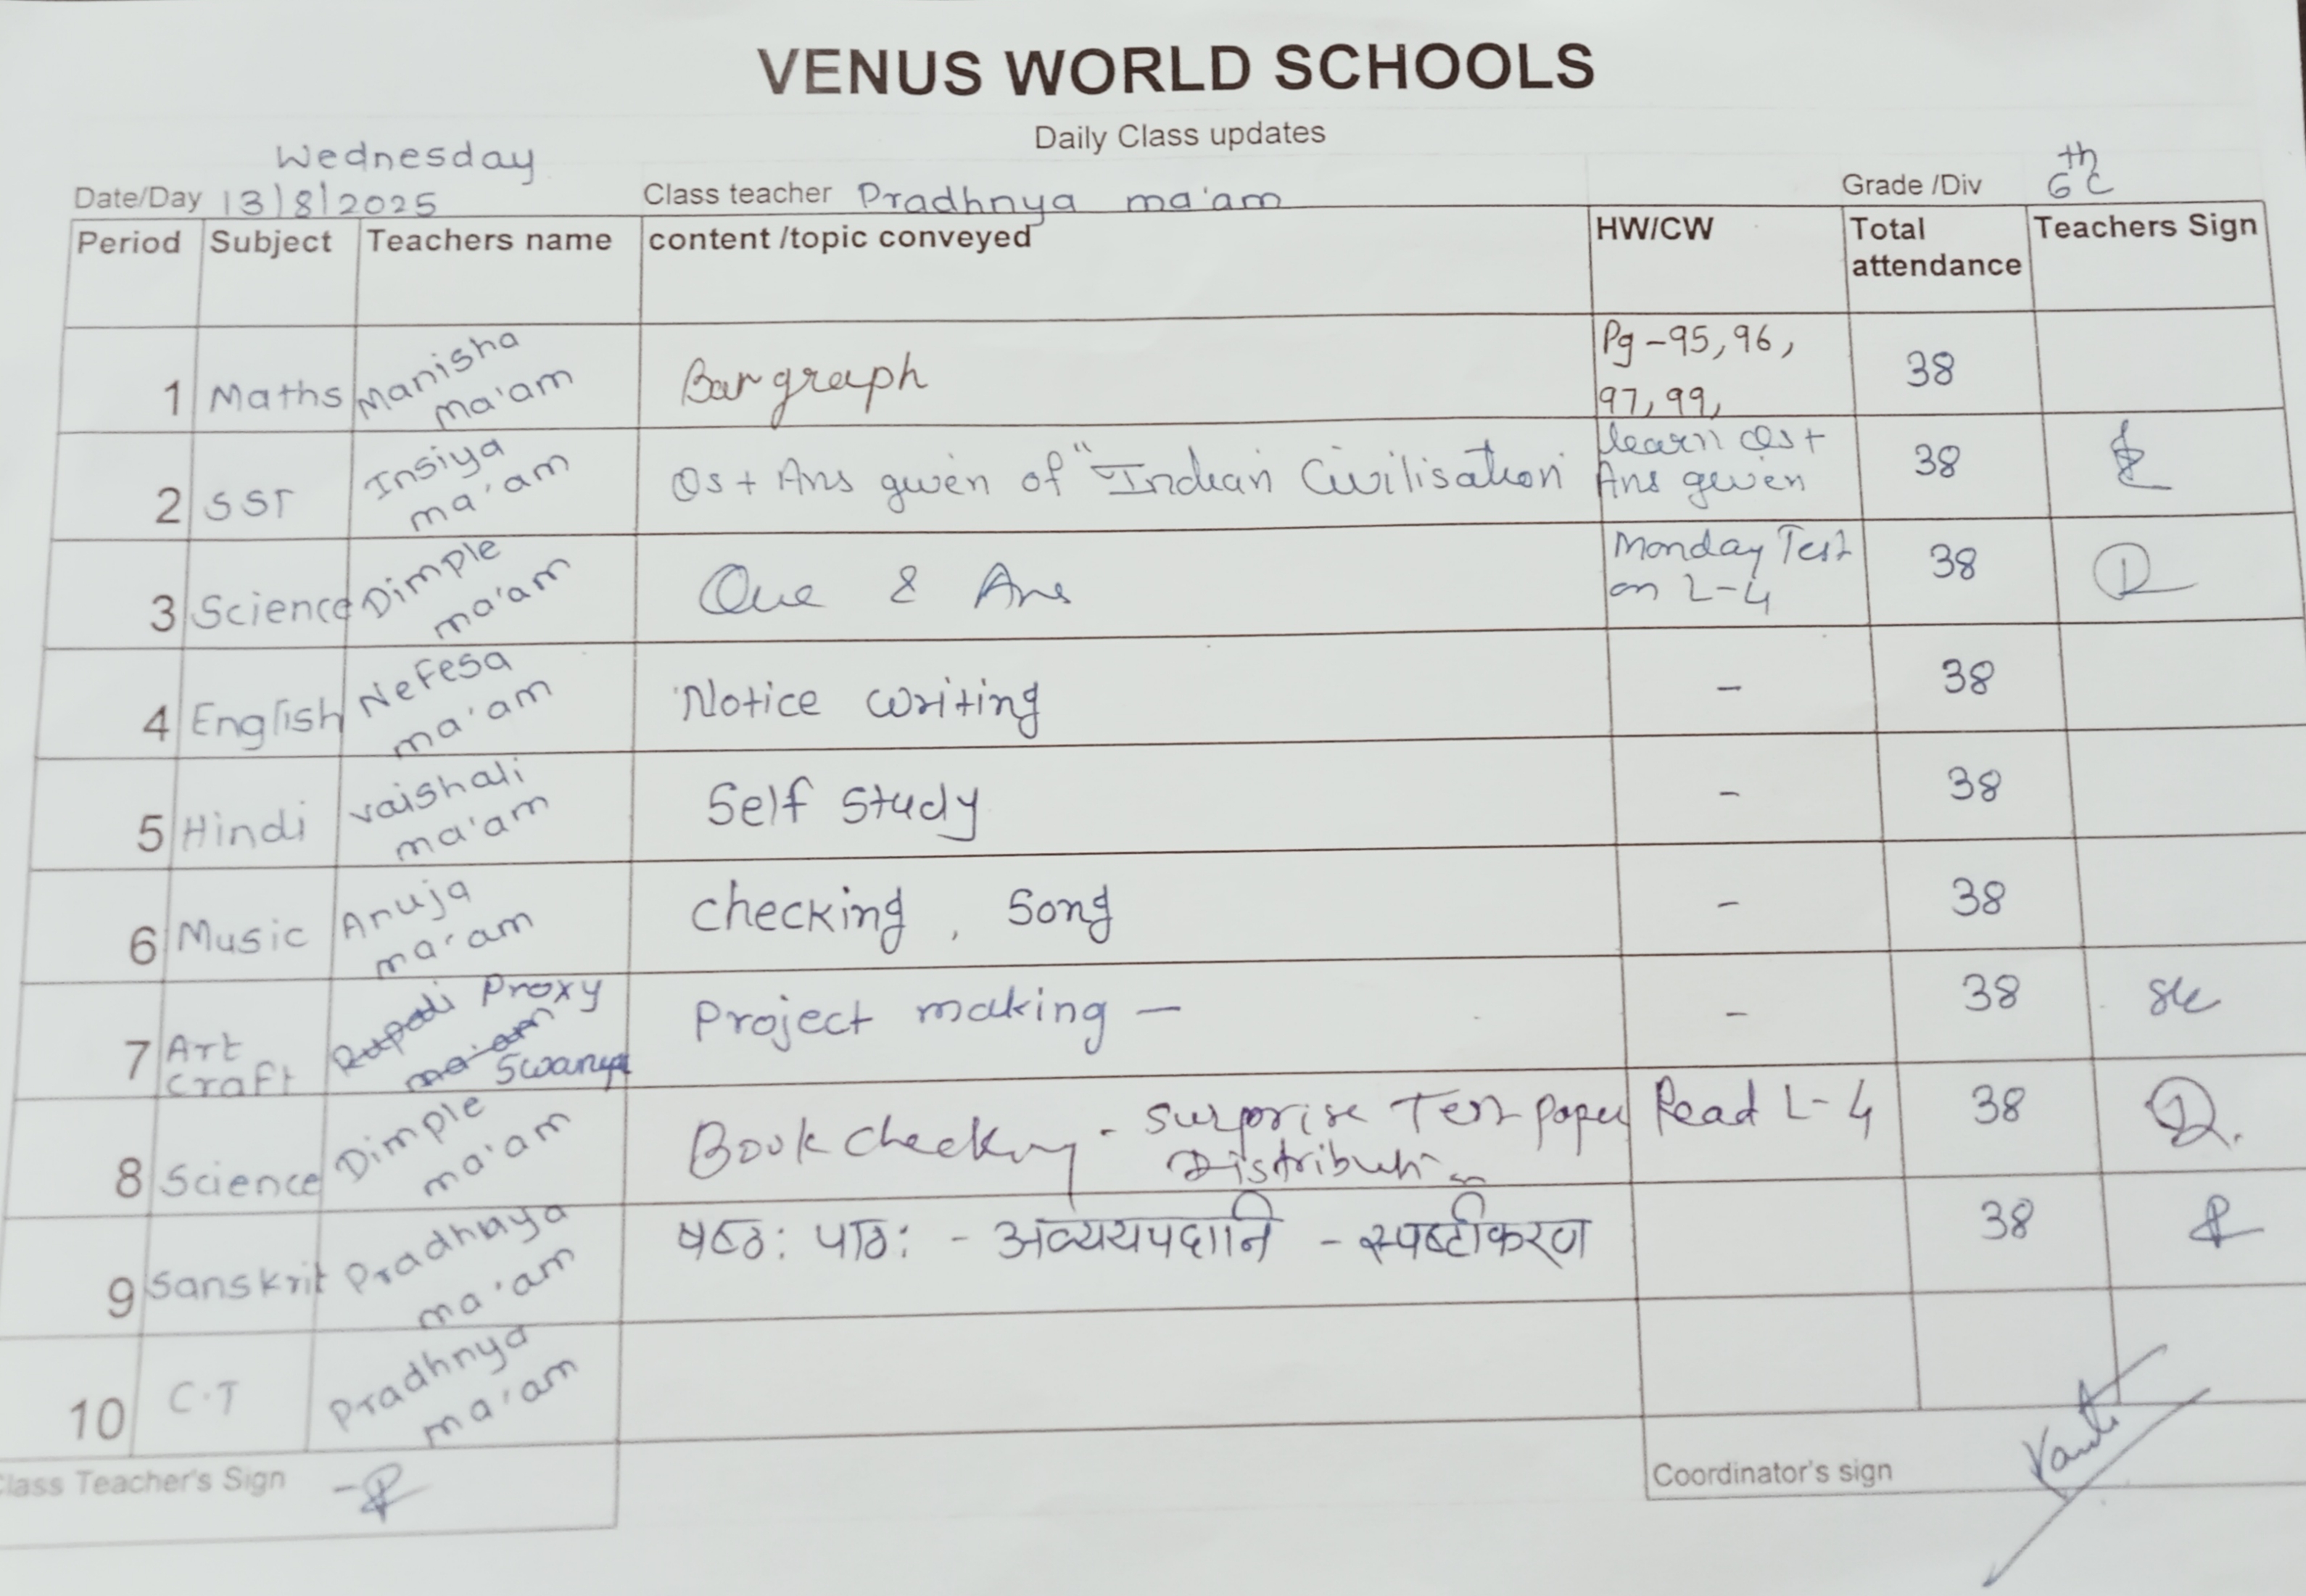 VENUS WORLD SCHOOLS
Daily Class updates
Wednesday
Date/Day 13/8/2025 Class teacher Pradhnya ma'am Grade /Div 6th C
Period Subject Teachers name content /topic conveyed HW/CW Total attendance Teachers Sign
1 Maths Manisha ma'am Bar graph Pg - 95, 96, 97, 99, 38
2 SST Insiya ma'am Qs + Ans given of "Indian Civilisation learn Qs + Ans given 38
3 Science Dimple ma'am Que & Ans Monday Test on L-4 38
4 English Nefesa ma'am Notice writing - 38
5 Hindi Vaishali ma'am Self study - 38
6 Music Anuja ma'am checking, Song - 38
7 Art Craft Proxy Project making - - 38
8 Science Dimple ma'am Book checking - Surprise Test paper Distribution Read L-4 38
9 Sanskrit Pradhnya ma'am षष्ठः पाठः - अव्ययपदानि - स्पष्टीकरण 38
10 C.T Pradhnya ma'am
Class Teacher's Sign Coordinator's sign